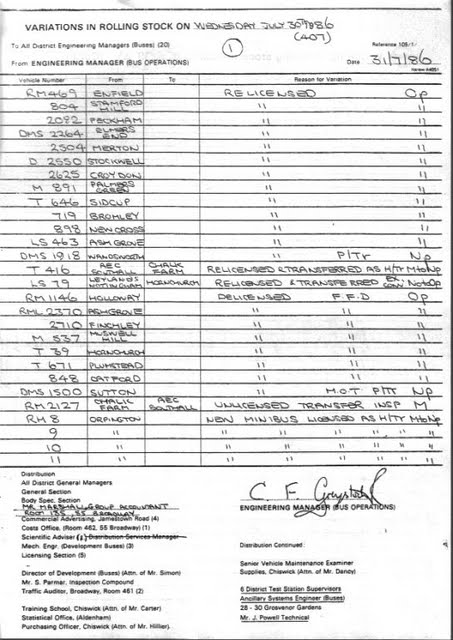 VARIATIONS IN ROLLING STOCK ON WEDNESDAY JULY 30th 1986
(407)
To All District Engineering Managers (Buses) (20)
①
Reference 105/1/
From ENGINEERING MANAGER (BUS OPERATIONS)
Date 31/7/86
Vehicle Number From To Reason for Variation
RM 469 ENFIELD RELICENSED Op
804 STAMFORD HILL " "
2092 PECKHAM " "
DMS 2264 ELMERS END " "
2504 MERTON " "
D 2550 STOCKWELL " "
2625 CROYDON " "
M 891 PALMERS GREEN " "
T 646 SIDCUP " "
719 BROMLEY " "
898 NEW CROSS " "
LS 463 ASH GROVE " "
DMS 1918 WANDSWORTH " P/Tr Np
T 416 AEC SOUTHALL CHALK FARM RELICENSED & TRANSFERRED AS H/Tr M to Np
LS 79 LEYLANDS NOTTINGHAM HORNCHURCH RELICENSED & TRANSFERRED EX CONV N to Op
RM 1146 HOLLOWAY DELICENSED F.F.D Op
RML 2370 ASHGROVE " " "
2710 FINCHLEY " " "
M 537 MUSWELL HILL " " "
T 39 HORNCHURCH " " "
T 671 PLUMSTEAD " " "
848 CATFORD " " "
DMS 1500 SUTTON " M.O.T P/Tr Np
RM 2127 CHALK FARM AEC SOUTHALL UNLICENSED TRANSFER INSP M
RH 8 ORPINGTON NEW MINIBUS LICENSED AS H/Tr M to Np
9 " " " " " " "
10 " " " " " " "
11 " " " " " " "
Distribution
All District General Managers
General Section
Body Spec. Section
MR MARSHALL GROUP ACCOUNTANT
ROOM 135, 55 BROADWAY
Commercial Advertising, Jamestown Road (4)
Costs Office, (Room 462, 55 Broadway) (1)
Scientific Adviser Distribution Services Manager
Mech. Engr. (Development Buses) (3)
Licensing Section (5)
Director of Development (Buses) (Attn. of Mr. Simon)
Mr. S. Parmar, Inspection Compound
Traffic Auditor, Broadway, Room 461 (2)
Training School, Chiswick (Attn. of Mr. Carter)
Statistical Office, (Aldenham)
Purchasing Officer, Chiswick (Attn. of Mr. Hillier).
ENGINEERING MANAGER (BUS OPERATIONS)
Distribution Continued:
Senior Vehicle Maintenance Examiner
Supplies, Chiswick (Attn. of Mr. Dancy)
6 District Test Station Supervisors
Ancillary Systems Engineer (Buses)
28 - 30 Grosvenor Gardens
Mr. J. Powell Technical